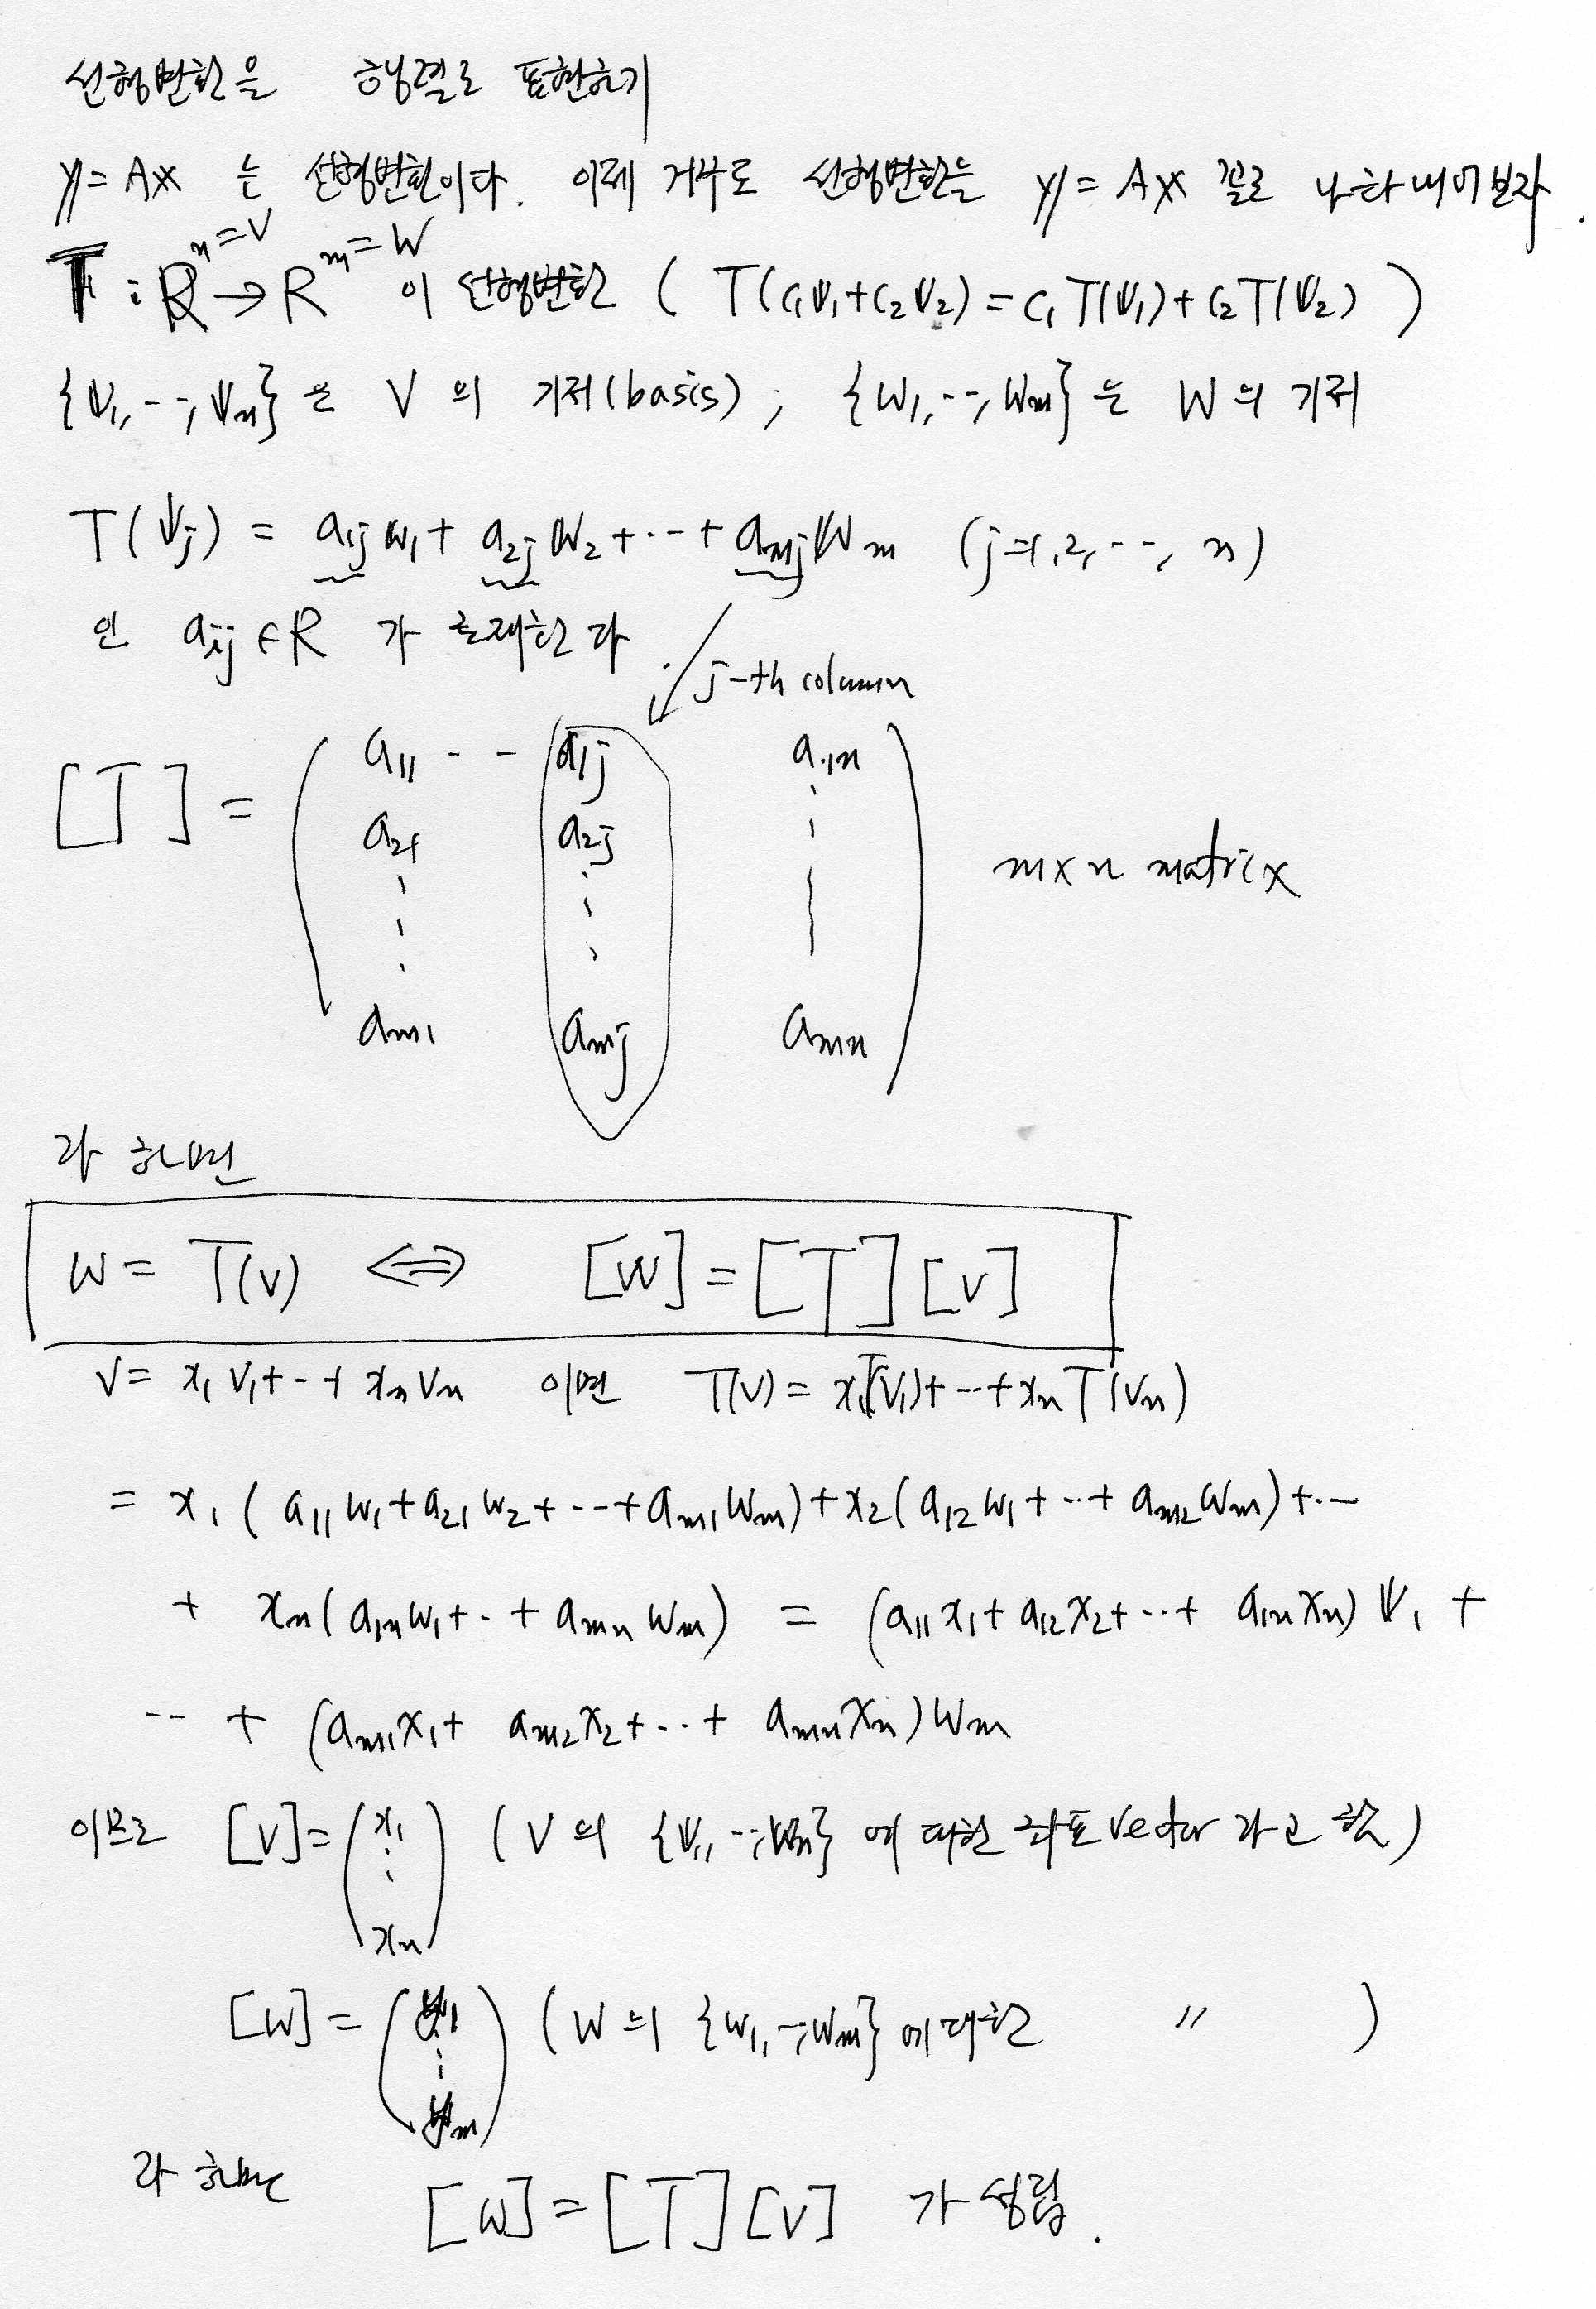 선형변환을 행렬로 표현하기
y = Ax 는 선형변환이다. 이제 거꾸로 선형변환을 y = Ax 꼴로 나타내어보자.
T : R^n = V → R^m = W 이 선형변환 ( T(c₁v₁+c₂v₂) = c₁T(v₁)+c₂T(v₂) )
{v₁, --, vₙ} 은 V 의 기저(basis), {w₁, --, wₘ} 는 W의 기저
T(vⱼ) = a₁ⱼw₁ + a₂ⱼw₂ + ·-- + aₘⱼwₘ (j=1, 2, --, n)
인 aᵢⱼ ∈ R 가 존재한다
j-th column
[T] = ( a₁₁ - - a₁ⱼ a₁ₙ
a₂₁ a₂ⱼ
aₘ₁ aₘⱼ aₘₙ ) m×n matrix
라 하면
w = T(v) ⇔ [w] = [T][v]
v = x₁v₁+--+xₙvₙ 이면 T(v) = x₁T(v₁)+--+xₙT(vₙ)
= x₁(a₁₁w₁+a₂₁w₂+--+aₘ₁wₘ)+x₂(a₁₂w₁+--+aₘ₂wₘ)+--
+ xₙ(a₁ₙw₁+-+aₘₙwₘ) = (a₁₁x₁+a₁₂x₂+--+a₁ₙxₙ)v₁ +
-- + (aₘ₁x₁+ aₘ₂x₂+--+ aₘₙxₙ)wₘ
이므로 [v]=(x₁ ⋮ xₙ) (v의 {v₁, --, vₙ} 에 대한 좌표 vector 라고 함)
[w]=(y₁ ⋮ yₘ) (w의 {w₁, --, wₘ} 에 대한 〃 )
라 하면
[w]=[T][v] 가 성립.